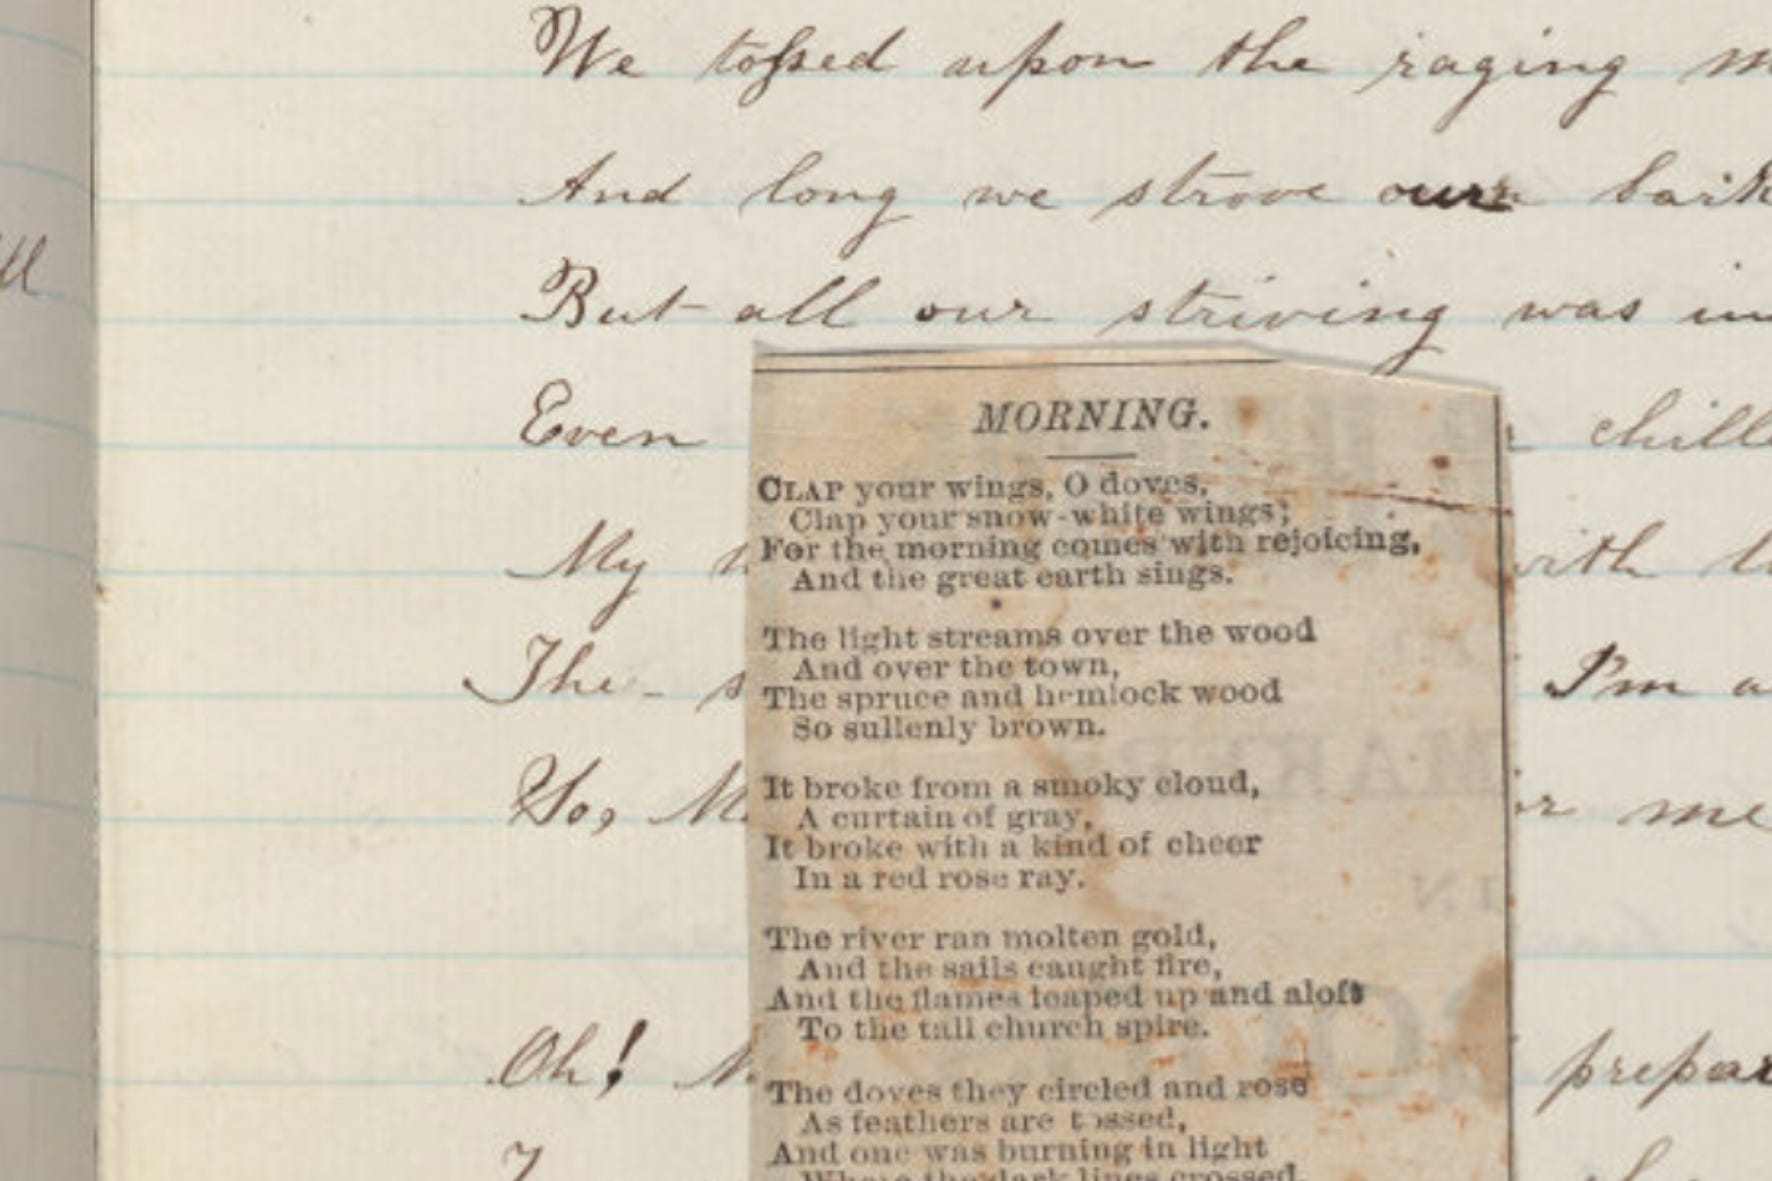 We tossed upon the raging
And long we strove our bark
But all our striving was
Even
chill
My
with
The- I'm
me
Oh! prepar
MORNING.
CLAP your wings, O doves,
Clap your snow-white wings;
For the morning comes with rejoicing,
And the great earth sings.
The light streams over the wood
And over the town,
The spruce and hemlock wood
So sullenly brown.
It broke from a smoky cloud,
A curtain of gray,
It broke with a kind of cheer
In a red rose ray.
The river ran molten gold,
And the sails caught fire,
And the flames leaped up and aloft
To the tall church spire.
The doves they circled and rose
As feathers are tossed,
And one was burning in light
Where the dark lines crossed.